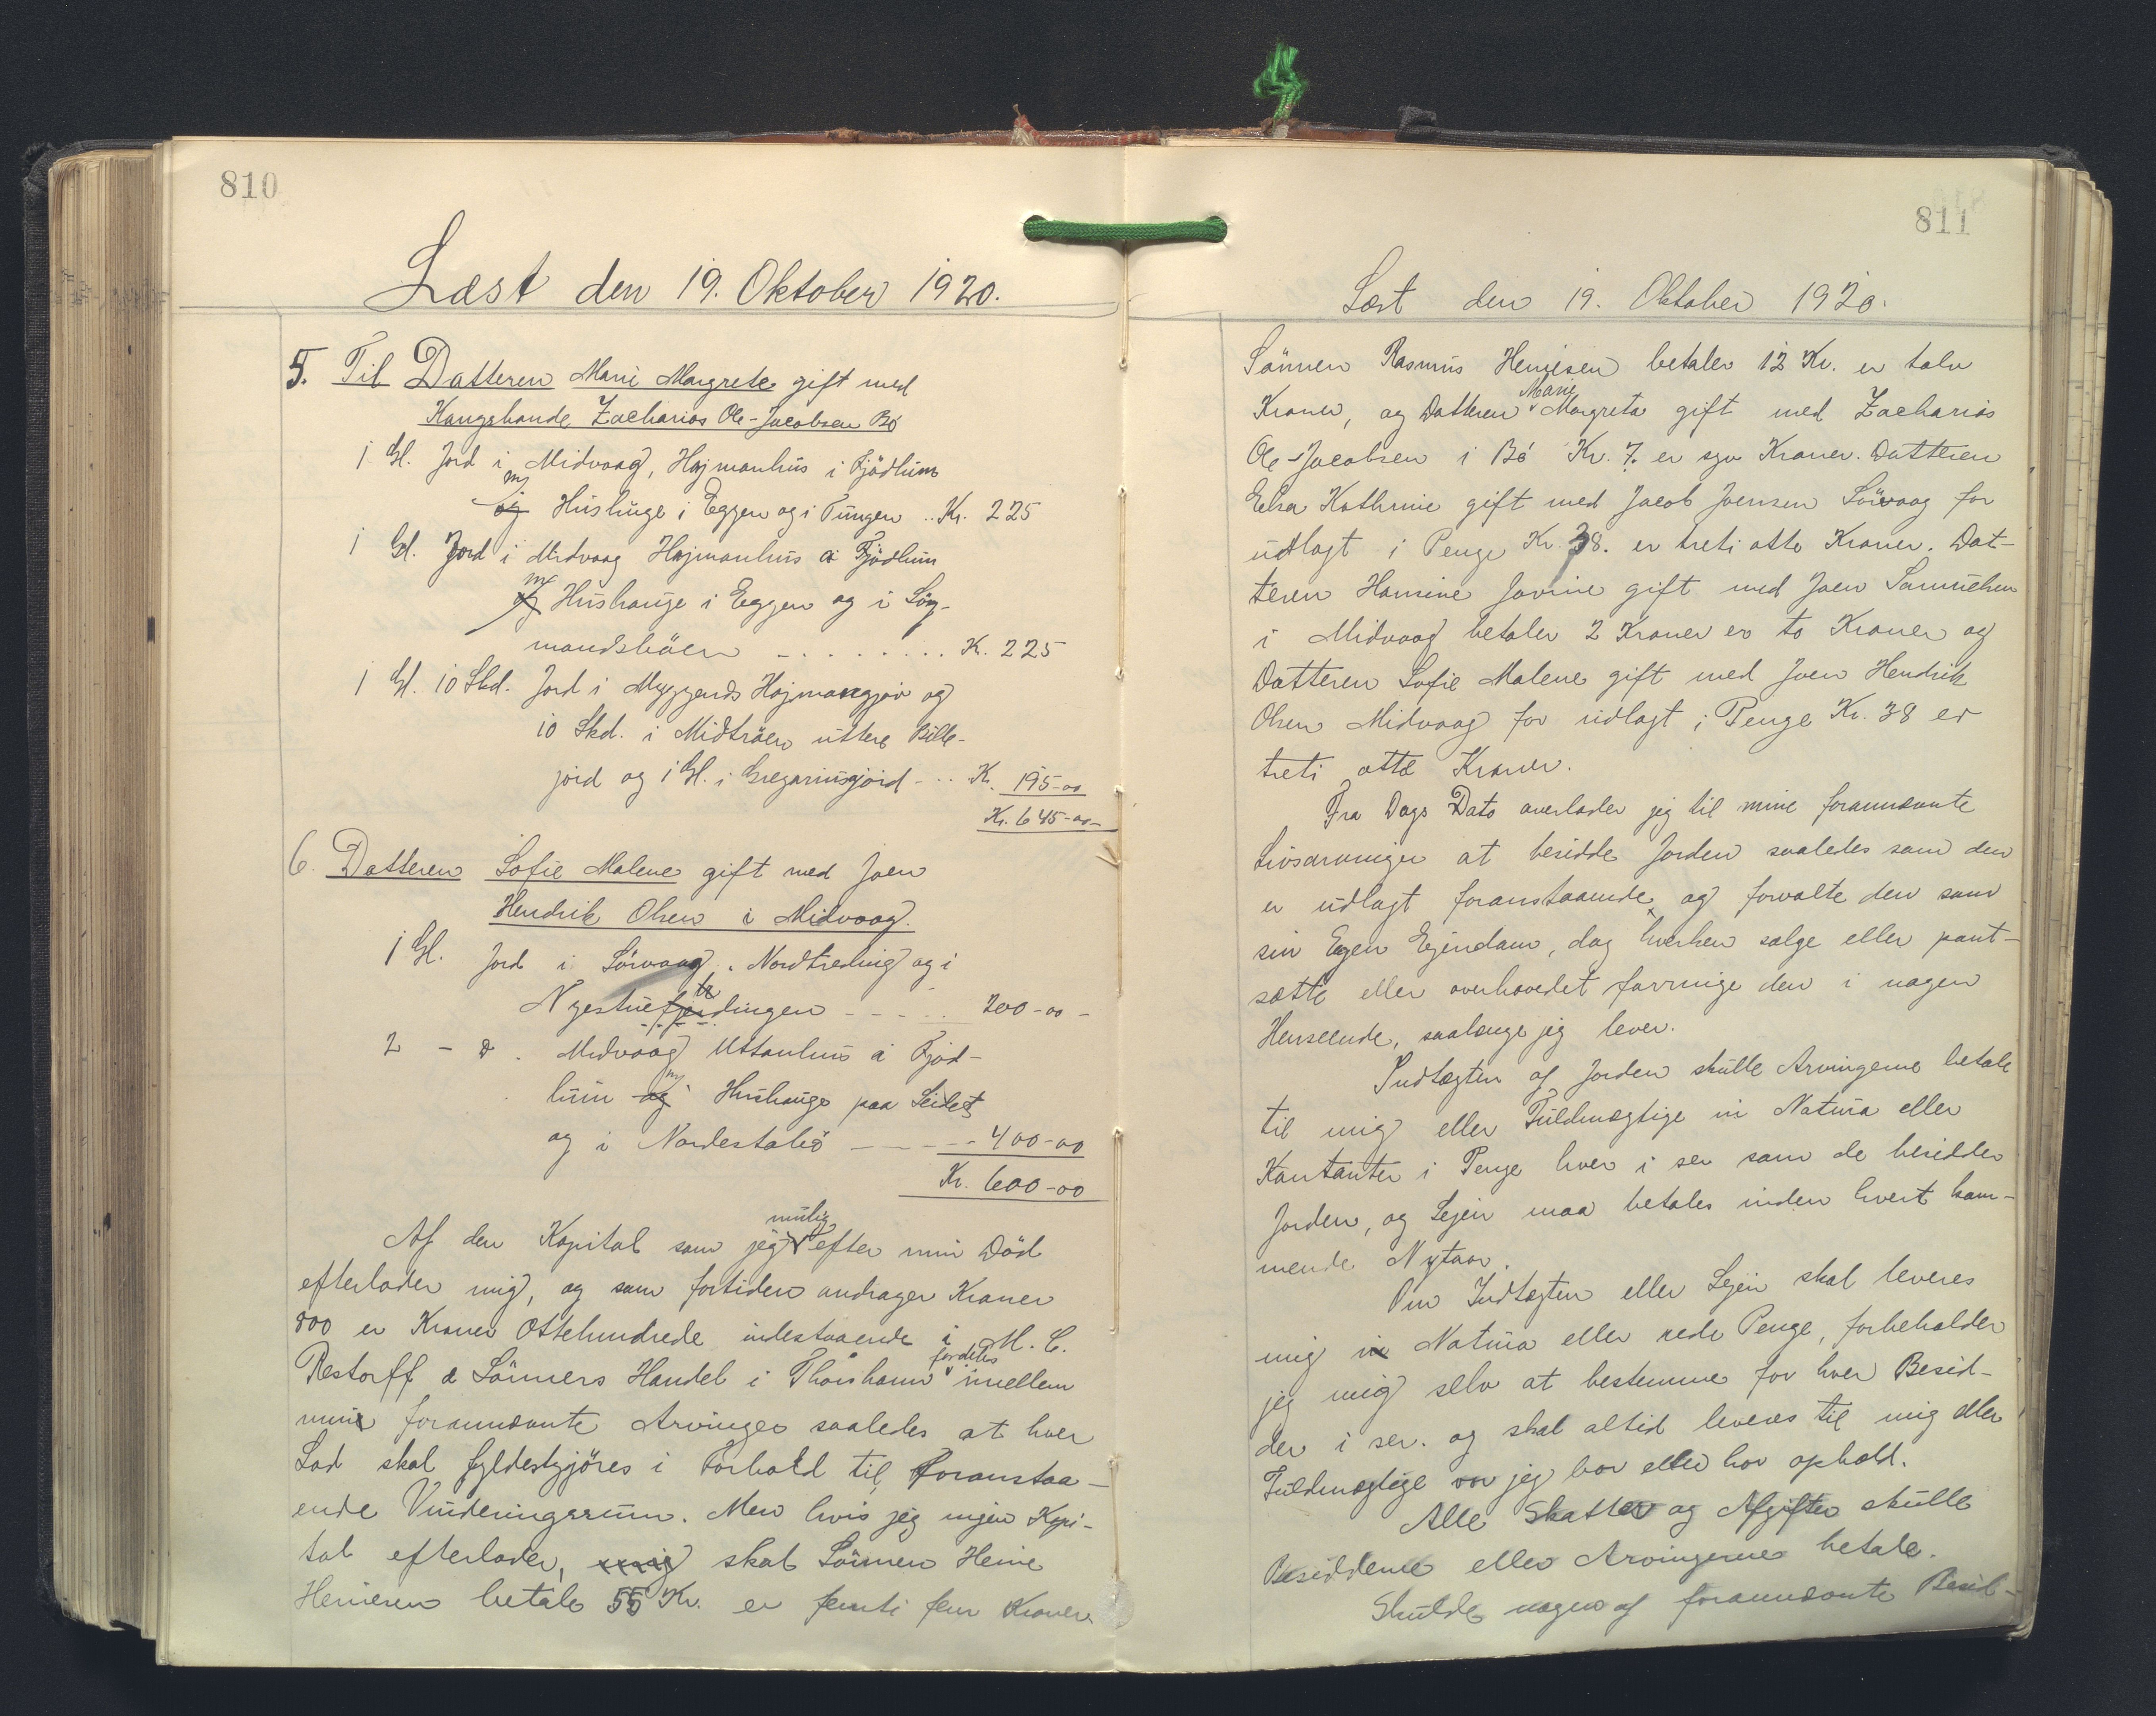 810
Læst den 19. Oktober 1920.
5. Til Datteren Marie Margrete gift med
Kongsbonde Zacharias Ole-Jacobsen Bø
1 Gl. Jord i Midvaag, Hajmanhus i Fjødlum
og m/ Hushuge i Eggen og i Tungen .. Kr. 225
1 Gl. Jord i Midvaag Hajmanhus a Fjødlum
og m/ Hushauge i Eggen og i Løg-
mandsbøen - . . . . . . . . Kr. 225
1 Gl. 10 Skd. Jord i Myggenæs Hajmangjov og
10 Skd. i Midtrøen uttere Bille-
jord og 1 Gl. i Gregariusgjørd - .. Kr. 195-00
Kr. 645-00-
6. Datteren Sofie Malene gift med Joen
Hendrik Olsen i Midvaag.
1 Gl. Jord i Sørvaag, . Nordtreding og i
Nygestuefjerdingen - - - .. 200-00-
2 - D . Midvaag Uttanhus a Fjød-
lum og m/ Hushauge paa Seidet
og i Nordestabø - - - 400-00
Kr. 600-00
Af den Kapital som jeg mulig efter min Død
efterlader mig, og som fortiden andrager Kroner
800 er Kroner Ottehundrede indestaaende i M. C.
Restorff & Sönners Handel i Thorshavn fordeles imellem
mine forannævnte Arvinger saaledes at hver
Lod skal fyldestgjöres i Forhold til foranstaa-
ende Vurderingssum. Men hvis jeg ingen Kapi-
tal efterlader, mig skal Sönnen Heine
Heinesen betale 55 Kr. er femti fem Kroner
811
Læst den 19. Oktober 1920.
Sönnen Rasmus Heinesen betaler 12 Kr. er tolv
Kroner, og Datteren Marie Margreta gift med Zacharias
Ole-Jacobsen i Bø Kr. 7. er syv Kroner. Datteren
Elsa Kathrine gift med Jacob Joensen Sörvaag for
udlagt i Penge Kr. 38. er treti otte Kroner. Dat-
teren Hansine Javine gift med Joen Samuelsen
i Midvaag betaler 2 Kroner er to Kroner og
Datteren Sofie Malene gift med Joen Hendrik
Olsen Midvaag for udlagt i Penge Kr. 38 er
treti otte Kroner.
Fra Dags Dato overlader jeg til mine forannævnte
Livsarvinger at besidde Jorden saaledes som den
er udlagt foranstaaende, og forvalte den som
sin Egen Ejendom, dog hverken sælge eller pant-
sætte eller overhovedet forringe den i nogen
Henseende, saalænge jeg lever.
Indtægten af Jorden skulle Arvingerne betale
til mig eller Fuldmægtige in Natura eller
Kontanter i Penge hver i sær som de besidder
Jorden, og Lejen maa betales inden hvert kom-
mende Nytaar.
Om Indtægten eller Lejen skal leveres
mig in Natura eller rede Penge, forbeholder
jeg mig selv at bestemme for hver Besid-
der i sær. og skal altid leveres til mig eller
Fuldmægtige vor jeg bor eller har ophold.
Alle Skatter og Afgifter skulle
Besidderne eller Arvingerne betale.
Skulde nogen af forannævnte Besid-